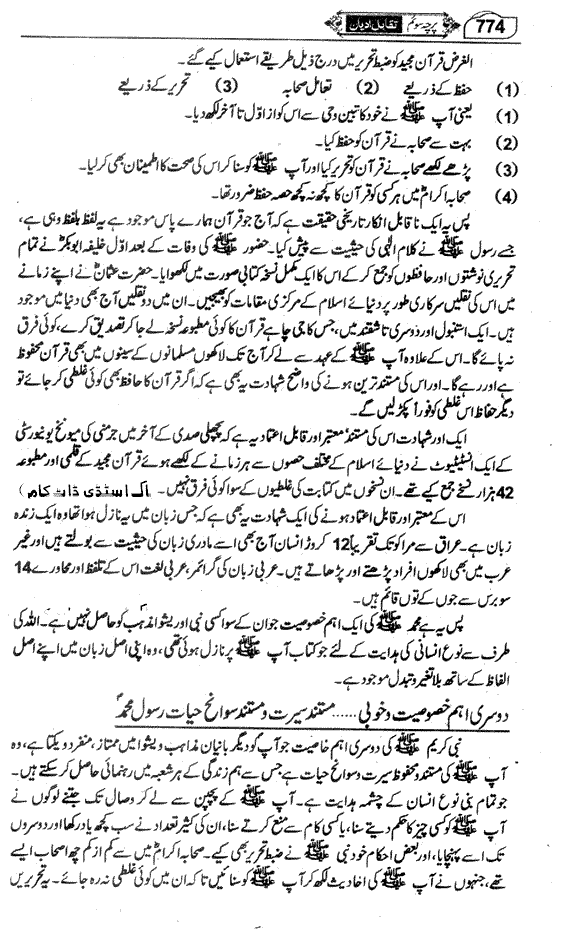 774 تقابل ادیان پرچہ سوئم
الغرض قرآن مجید کو ضبط تحریر میں درج ذیل طریقے استعمال کیے گئے۔
(1) حفظ کے ذریعے (2) تعامل صحابہ (3) تحریر کے ذریعے
(1) یعنی آپ ﷺ نے خود کاتبین وحی سے اس کو از اوّل تا آخر لکھ دیا۔
(2) بہت سے صحابہ نے قرآن کو حفظ کیا۔
(3) پڑھے لکھے صحابہ نے قرآن کو تحریر کیا اور آپ ﷺ کو سنا کر اس کی صحت کا اطمینان بھی کر لیا۔
(4) صحابہ اکرامؓ میں ہر کسی کو قرآن کا کچھ نہ کچھ حصہ حفظ ضرور تھا۔
پس یہ ایک نا قابل انکار تاریخی حقیقت ہے کہ آج جو قرآن ہمارے پاس موجود ہے یہ لفظ بلفظ وہی ہے،
جسے رسول ﷺ نے کلام الٰہی کی حیثیت سے پیش کیا۔ حضور ﷺ کی وفات کے بعد اوّل خلیفہ ابوبکرؓ نے تمام
تحریری نوشتوں اور حافظوں کو جمع کر کے اس کا ایک مکمل نسخہ کتابی صورت میں لکھوایا۔ حضرت عثمانؓ نے اپنے زمانے
میں اس کی نقلیں سرکاری طور پر دنیائے اسلام کے مرکزی مقامات کو بھیجیں۔ ان میں دو نقلیں آج بھی دنیا میں موجود
ہیں۔ ایک استنبول اور دوسری تاشقند میں، جس کا جی چاہے قرآن کا کوئی مطبوعہ نسخہ لے جا کر تصدیق کرے، کوئی فرق
نہ پائے گا۔ اس کے علاوہ آپ ﷺ کے عہد سے لے کر آج تک لاکھوں مسلمانوں کے سینوں میں بھی قرآن محفوظ
ہے اور رہے گا۔ اور اس کی مستند ترین ہونے کی واضح شہادت یہ بھی ہے کہ اگر قرآن کا حافظ بھی کوئی غلطی کر جائے تو
دیگر حفاظ اس غلطی کو فوراً پکڑ لیں گے۔
ایک اور شہادت اس کی مستند معتبر اور قابل اعتماد یہ ہے کہ پچھلی صدی کے آخر میں جرمنی کی میونخ یونیورسٹی
کے ایک انسٹیٹیوٹ نے دنیائے اسلام کے مختلف حصوں سے ہر زمانے کے لکھے ہوئے قرآن مجید کے قلمی اور مطبوعہ
42 ہزار نسخے جمع کیے تھے۔ ان نسخوں میں کتابت کی غلطیوں کے سوا کوئی فرق نہیں۔ ( اسٹڈی ڈاٹ کام )
اس کے معتبر اور قابل اعتماد ہونے کی ایک شہادت یہ بھی ہے کہ جس زبان میں یہ نازل ہوا تھا وہ ایک زندہ
زبان ہے۔ عراق سے مراکو تک تقریباً 12 کروڑ انسان آج بھی اسے مادری زبان کی حیثیت سے بولتے ہیں اور غیر
عرب میں بھی لاکھوں افراد پڑھتے اور پڑھاتے ہیں۔ عربی زبان کی گرائمر، عربی لغت اس کے تلفظ اور محاورے 14
سو برس سے جوں کے توں قائم ہیں۔
پس یہ ہے محمد ﷺ کی ایک اہم خصوصیت جو ان کے سوا کسی نبی اور پیشوا مذہب کو حاصل نہیں ہے۔ اللہ کی
طرف سے نوع انسانی کی ہدایت کے لئے جو کتاب آپ ﷺ پر نازل ہوئی تھی، وہ اپنی اصل زبان میں اپنے اصل
الفاظ کے ساتھ بلا تغیر و تبدل موجود ہے۔
دوسری اہم خصوصیت و خوبی ..... مستند سیرت و مستند سوانح حیات رسول محمدؐ
نبی کریم ﷺ کی دوسری اہم خاصیت جو آپ کو دیگر بانیان مذاہب و پیشوا میں ممتاز، منفرد و یکتا ہے، وہ
آپ ﷺ کی مستند و محفوظ سیرت و سوانح حیات ہے جس سے ہم زندگی کے ہر شعبہ میں رہنمائی حاصل کر سکتے ہیں۔
جو تمام بنی نوع انسان کے چشمہ ہدایت ہے۔ آپ ﷺ کے بچپن سے لے کر وصال تک جتنے لوگوں نے
آپ ﷺ کو کسی چیز کا حکم دیتے سنا، یا کسی کام سے منع کرتے سنا، ان کی کثیر تعداد نے سب کچھ یاد رکھا اور دوسروں
تک اسے پہنچایا، اور بعض احکام خود نبی ﷺ نے ضبط تحریر بھی کیے۔ صحابہ اکرامؓ میں سے کم از کم چھ اصحاب ایسے
تھے، جنہوں نے آپ ﷺ کی احادیث لکھ کر آپ ﷺ کو سنائیں تاکہ ان میں کوئی غلطی نہ رہ جائے۔ یہ تحریریں